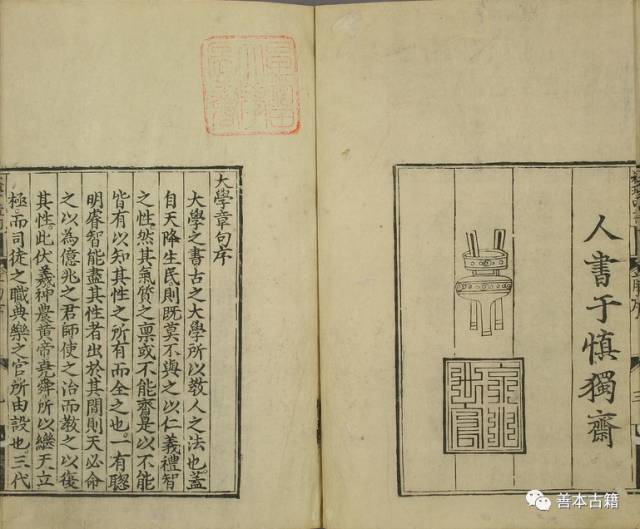 人書于慎獨齋
大學章句序
大學之書古之大學所以教人之法也蓋
自天降生民則既莫不與之以仁義禮智
之性然其氣質之稟或不能齊是以不能
皆有以知其性之所有而全之也一有聰
明睿智能盡其性者出於其間則天必命
之以為億兆之君師使之治而教之以復
其性此伏羲神農黃帝堯舜所以繼天立
極而司徒之職典樂之官所由設也三代
善本古籍